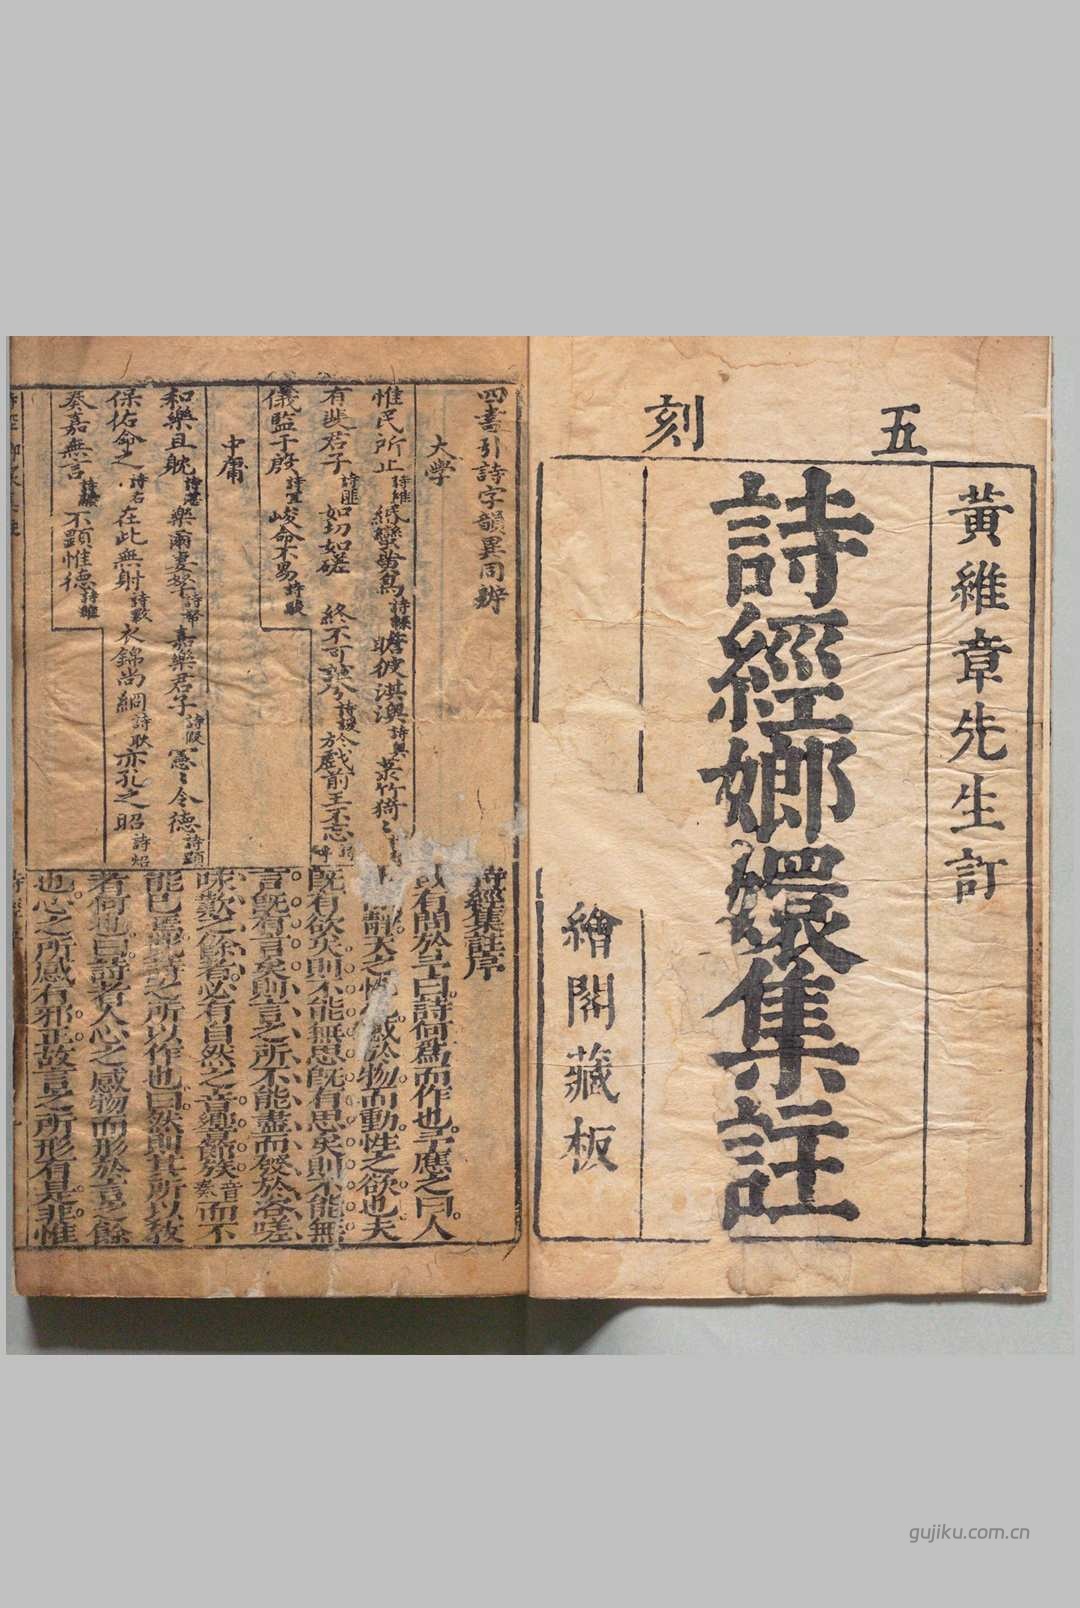 五刻
黃維章先生訂
詩經嫏嬛集註
繪閣藏板
四書引詩字韻異同辨
大學
惟民所止詩維民緡蠻黃鳥詩緜蠻瞻彼淇澳詩奧菉竹猗〻
有斐君子詩匪如切如磋 終不可諠兮詩諼於戲前王不忘
儀監于殷詩宜峻命不易詩駿
中庸
和樂且耽詩湛樂爾妻孥詩帑嘉樂君子詩假憲〻令德詩顯
保佑命之詩右在此無射詩斁衣錦尚絅詩耿亦孔之昭詩炤
奏嘉無言詩鬷不顯惟德詩維
詩經集註序
或有問於予曰詩何為而作也予應之曰人
靜天之性也感於物而動性之欲也夫
既有欲矣則不能無思既有思矣則不能無
言既有言矣則言之所不能盡而發於咨嗟
咏歎之餘者必有自然之音響節族音奏而不
能已焉此詩之所以作也曰然則其所以教
者何也曰詩者人心之感物而形於言之餘
也心之所感有邪正故言之所形有是非惟
gujiku.com.cn